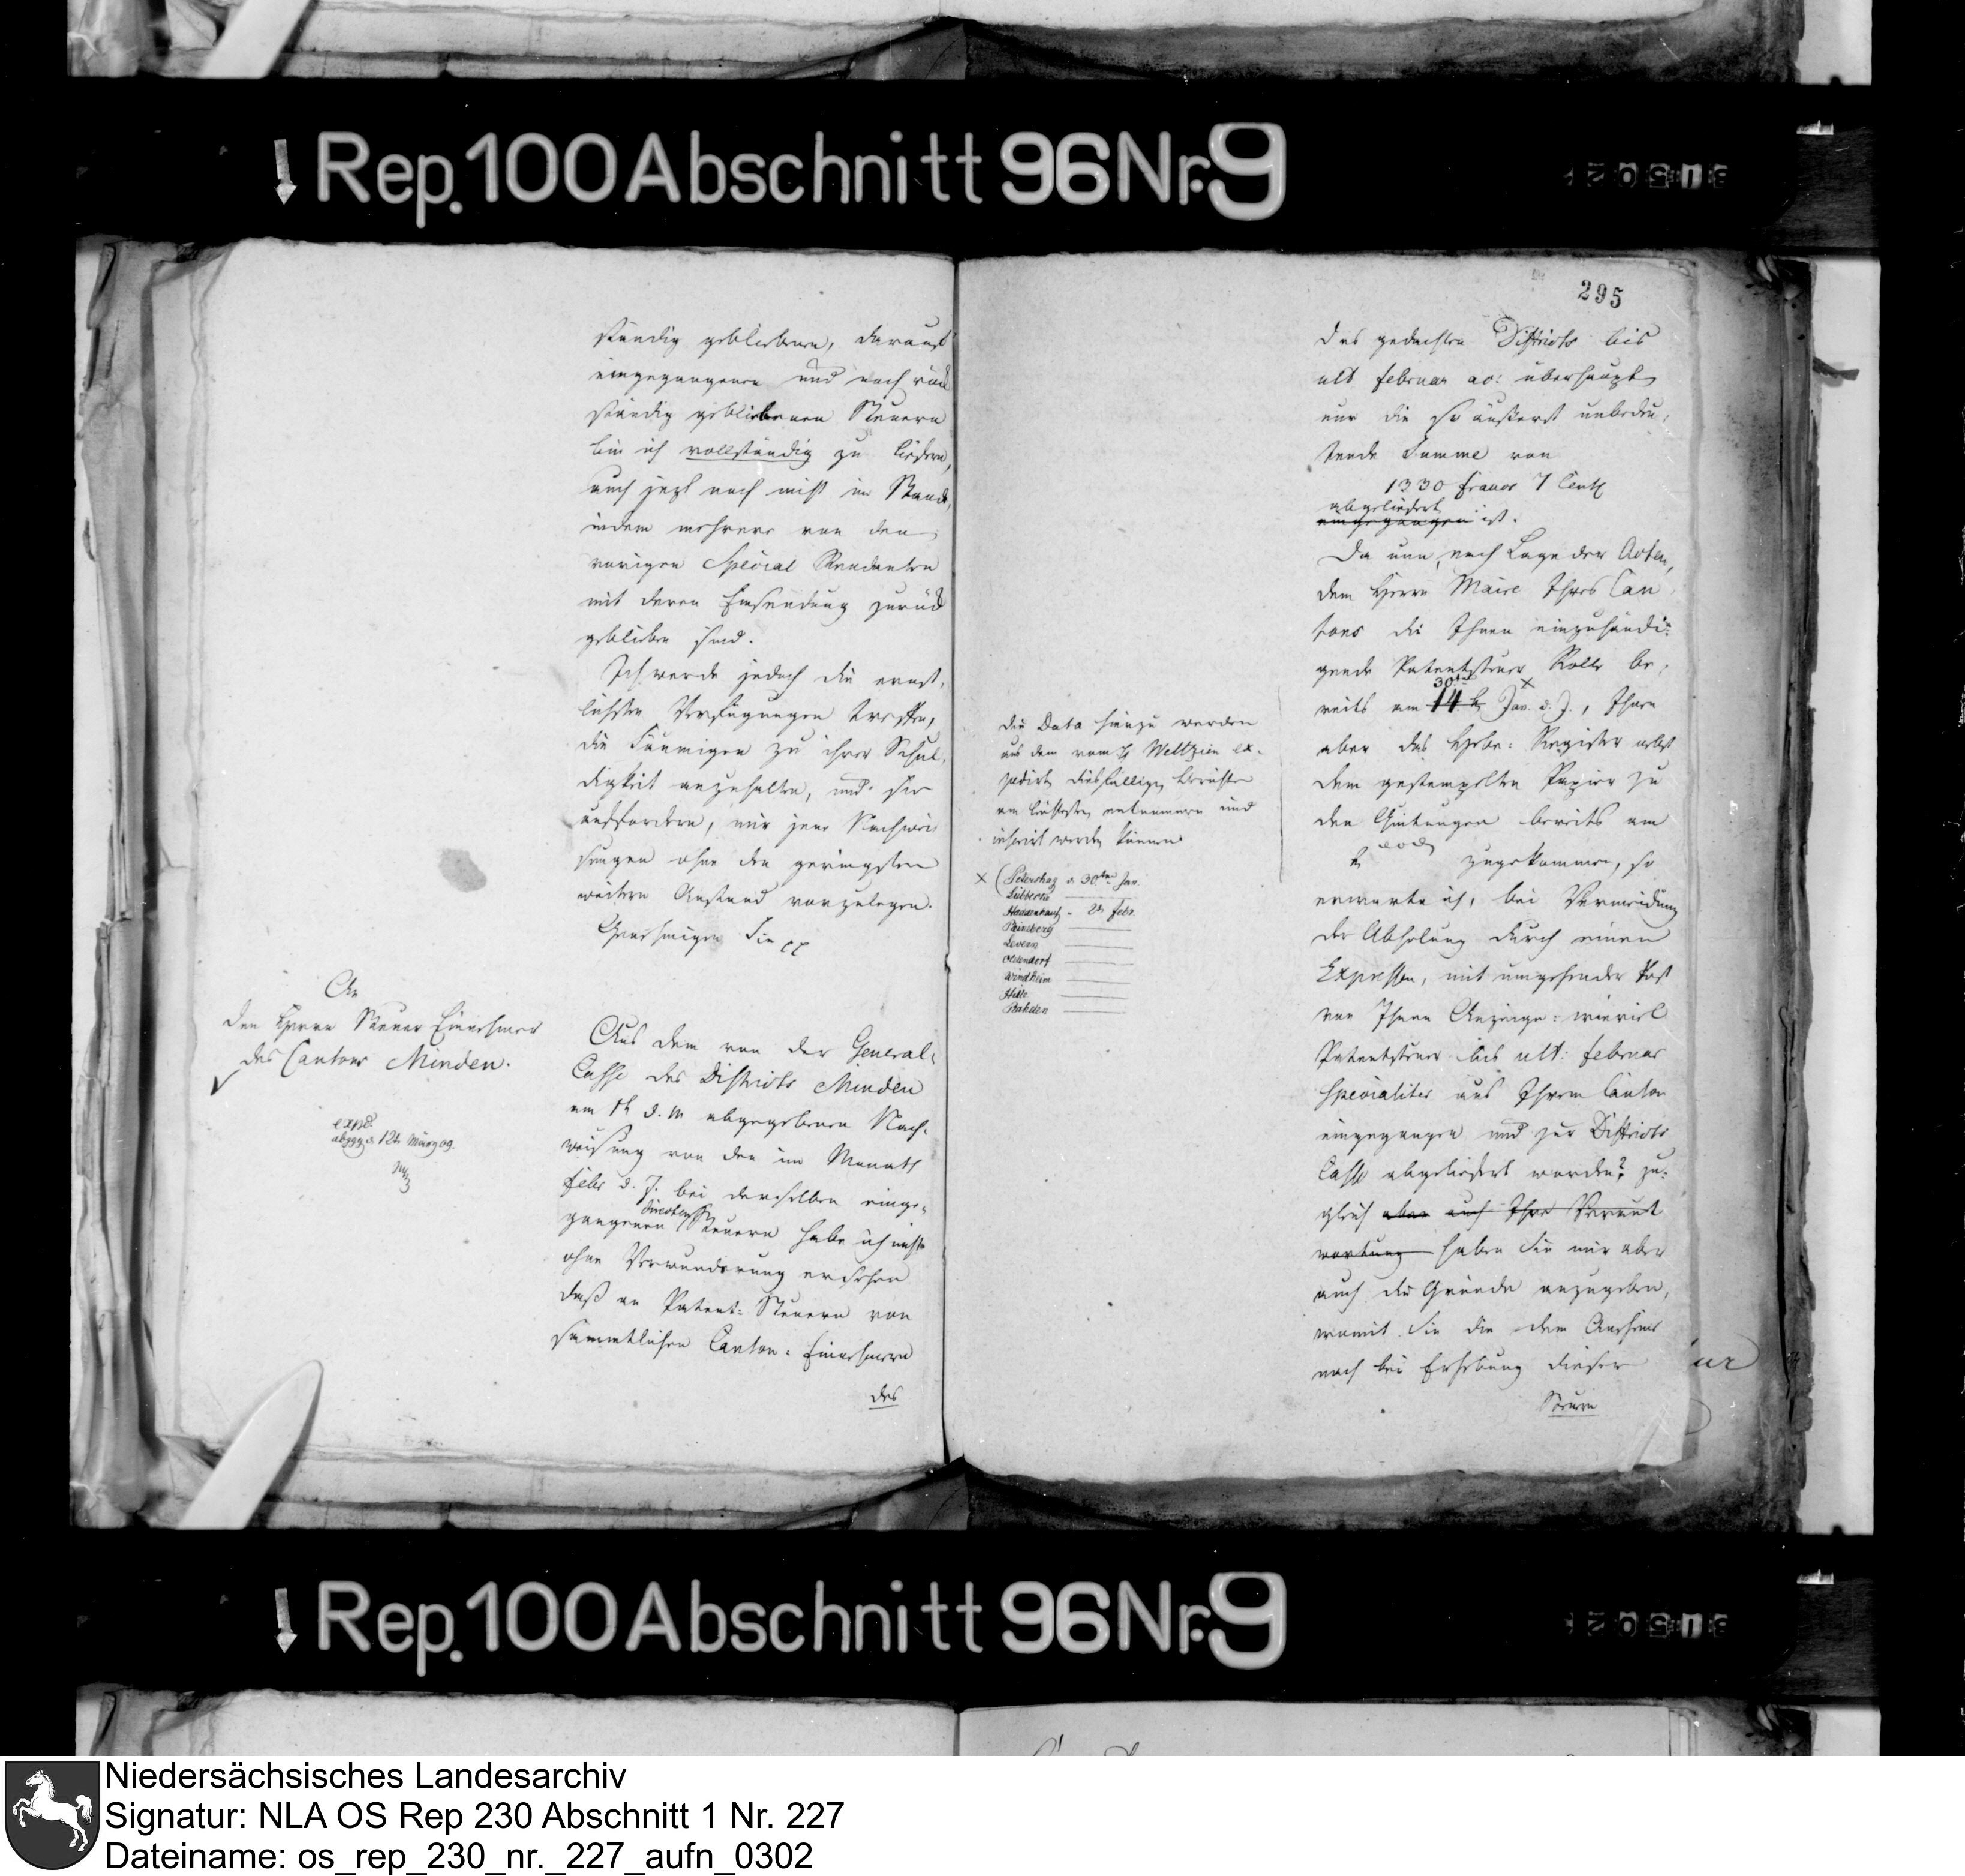 Rep. 100 Abschnitt 96 Nr. 9
ständig gebliebenen, darauf
eingegangenen und noch rück
ständig gebliebenen Steuern
bin ich vollständig zu liefern,
auch jezt noch nicht im Stande,
indem mehrere von den
vorigen Special Rendanten
mit deren Einsendung zurück
geblieben sind.
Ich werde jedoch die ernst,
lichsten Verfügungen treffen,
die Säumigen zu ihrer Schul,
digkeit anzuhalten, und sie
auffordern, mir jene Nachwei
sungen ohne den geringsten
weitern Anstand vorzulegen.
Genehmigen Sie pp
An
den Herrn Steuer Einnehmer
des Cantons Minden.
expd.
abgeg. d. 12t März 09.
Aus dem von der General-
Casse des Districts Minden
am d. M abgegebenen Nach-
weisung von den im Monath
Febr d. J. bei derselben einge-
gangenen directen Steuern habe ich nicht
ohne Verwunderung ersehen
daß an Patent-Steuern von
sämmtlichen Canton-Einnehmern
des
295
des gedachten Districts bis
ult Februar ac: überhaupt
nur die so äußerst unbedeu,
tende Summe von
1330 Francs 7 Cent
abgeliefert
eingegangen ist.
Da nun, nach Lage der Acten,
dem Herrn Maire Ihres Can
tons die Ihnen einzuhändi-
gende Patentsteuer Rolle be,
30t ×
reits am 14 t Jan. d. J., Ihnen
aber das Hebe-Register nebst
dem gestempelten Papier zu
den Quitungen bereits am
eod
t zugekommen, so
erwarte ich, bei Vermeidung
der Abholung durch einen
Expressen, mit umgehender Post
von Ihnen Anzeige: wieviel
Patentsteuer bis ult: Februar
specialiter aus Ihrem Canton
eingegangen und zur Districts
Casse abgeliefert worden? zu-
gleich aber auch Ihre Verant
wortung haben Sie mir aber
auch die Gründe anzugeben,
womit Sie die dem Anschein
nach bei Erhebung dieser
Steuern
die Data hinzu werden
aus dem vom H Weltzien ex-
pedirt diesfälligen Berichte
am leichtesten entnommen und
inserirt werden können
× (Petershag d. 30ten Jan.
Lübbecke
Hausberg - 2t Febr.
Reineberg
Levern
Oldendorf
Windheim
Hille
Rahden
Rep. 100 Abschnitt 96 Nr. 9
Niedersächsisches Landesarchiv
Signatur: NLA OS Rep 230 Abschnitt 1 Nr. 227
Dateiname: os_rep_230_nr._227_aufn_0302